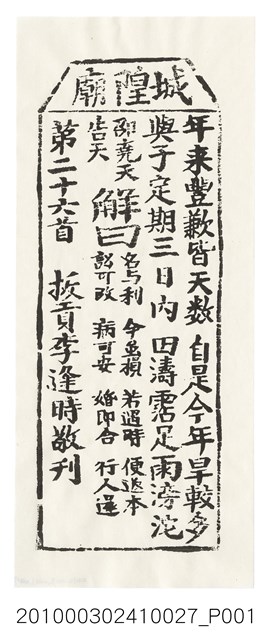 城隍廟
年来豐歉皆天数 自是今年旱較多
與子定期三日内 田濤霑足雨滂沱
邵堯天
告天
解曰
名与利 今虽損 若遇時 便返本
訟可改 病可安 婚即合 行人還
第二十六首 拔貢李逢時敬刊
201000302410027_P001